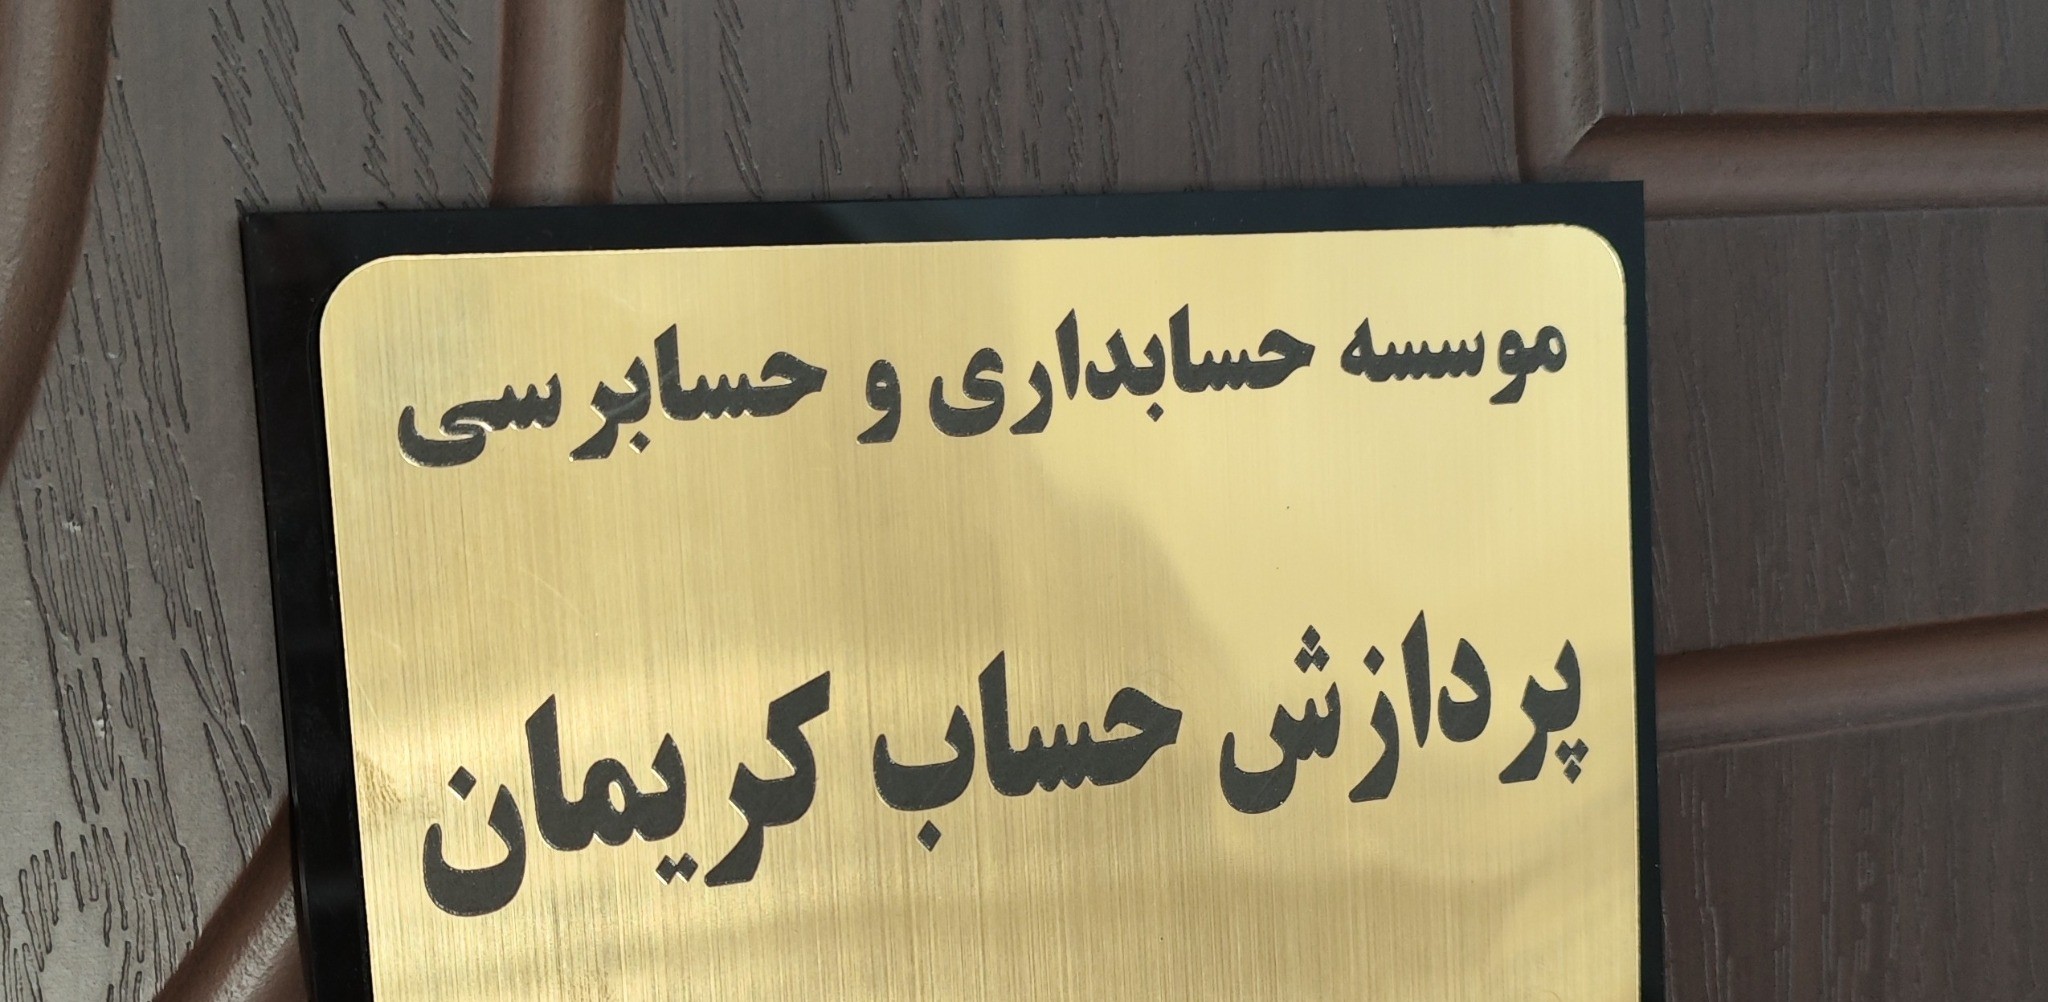 موسسه حسابداری و حسابرسی
پردازش حساب کریمان